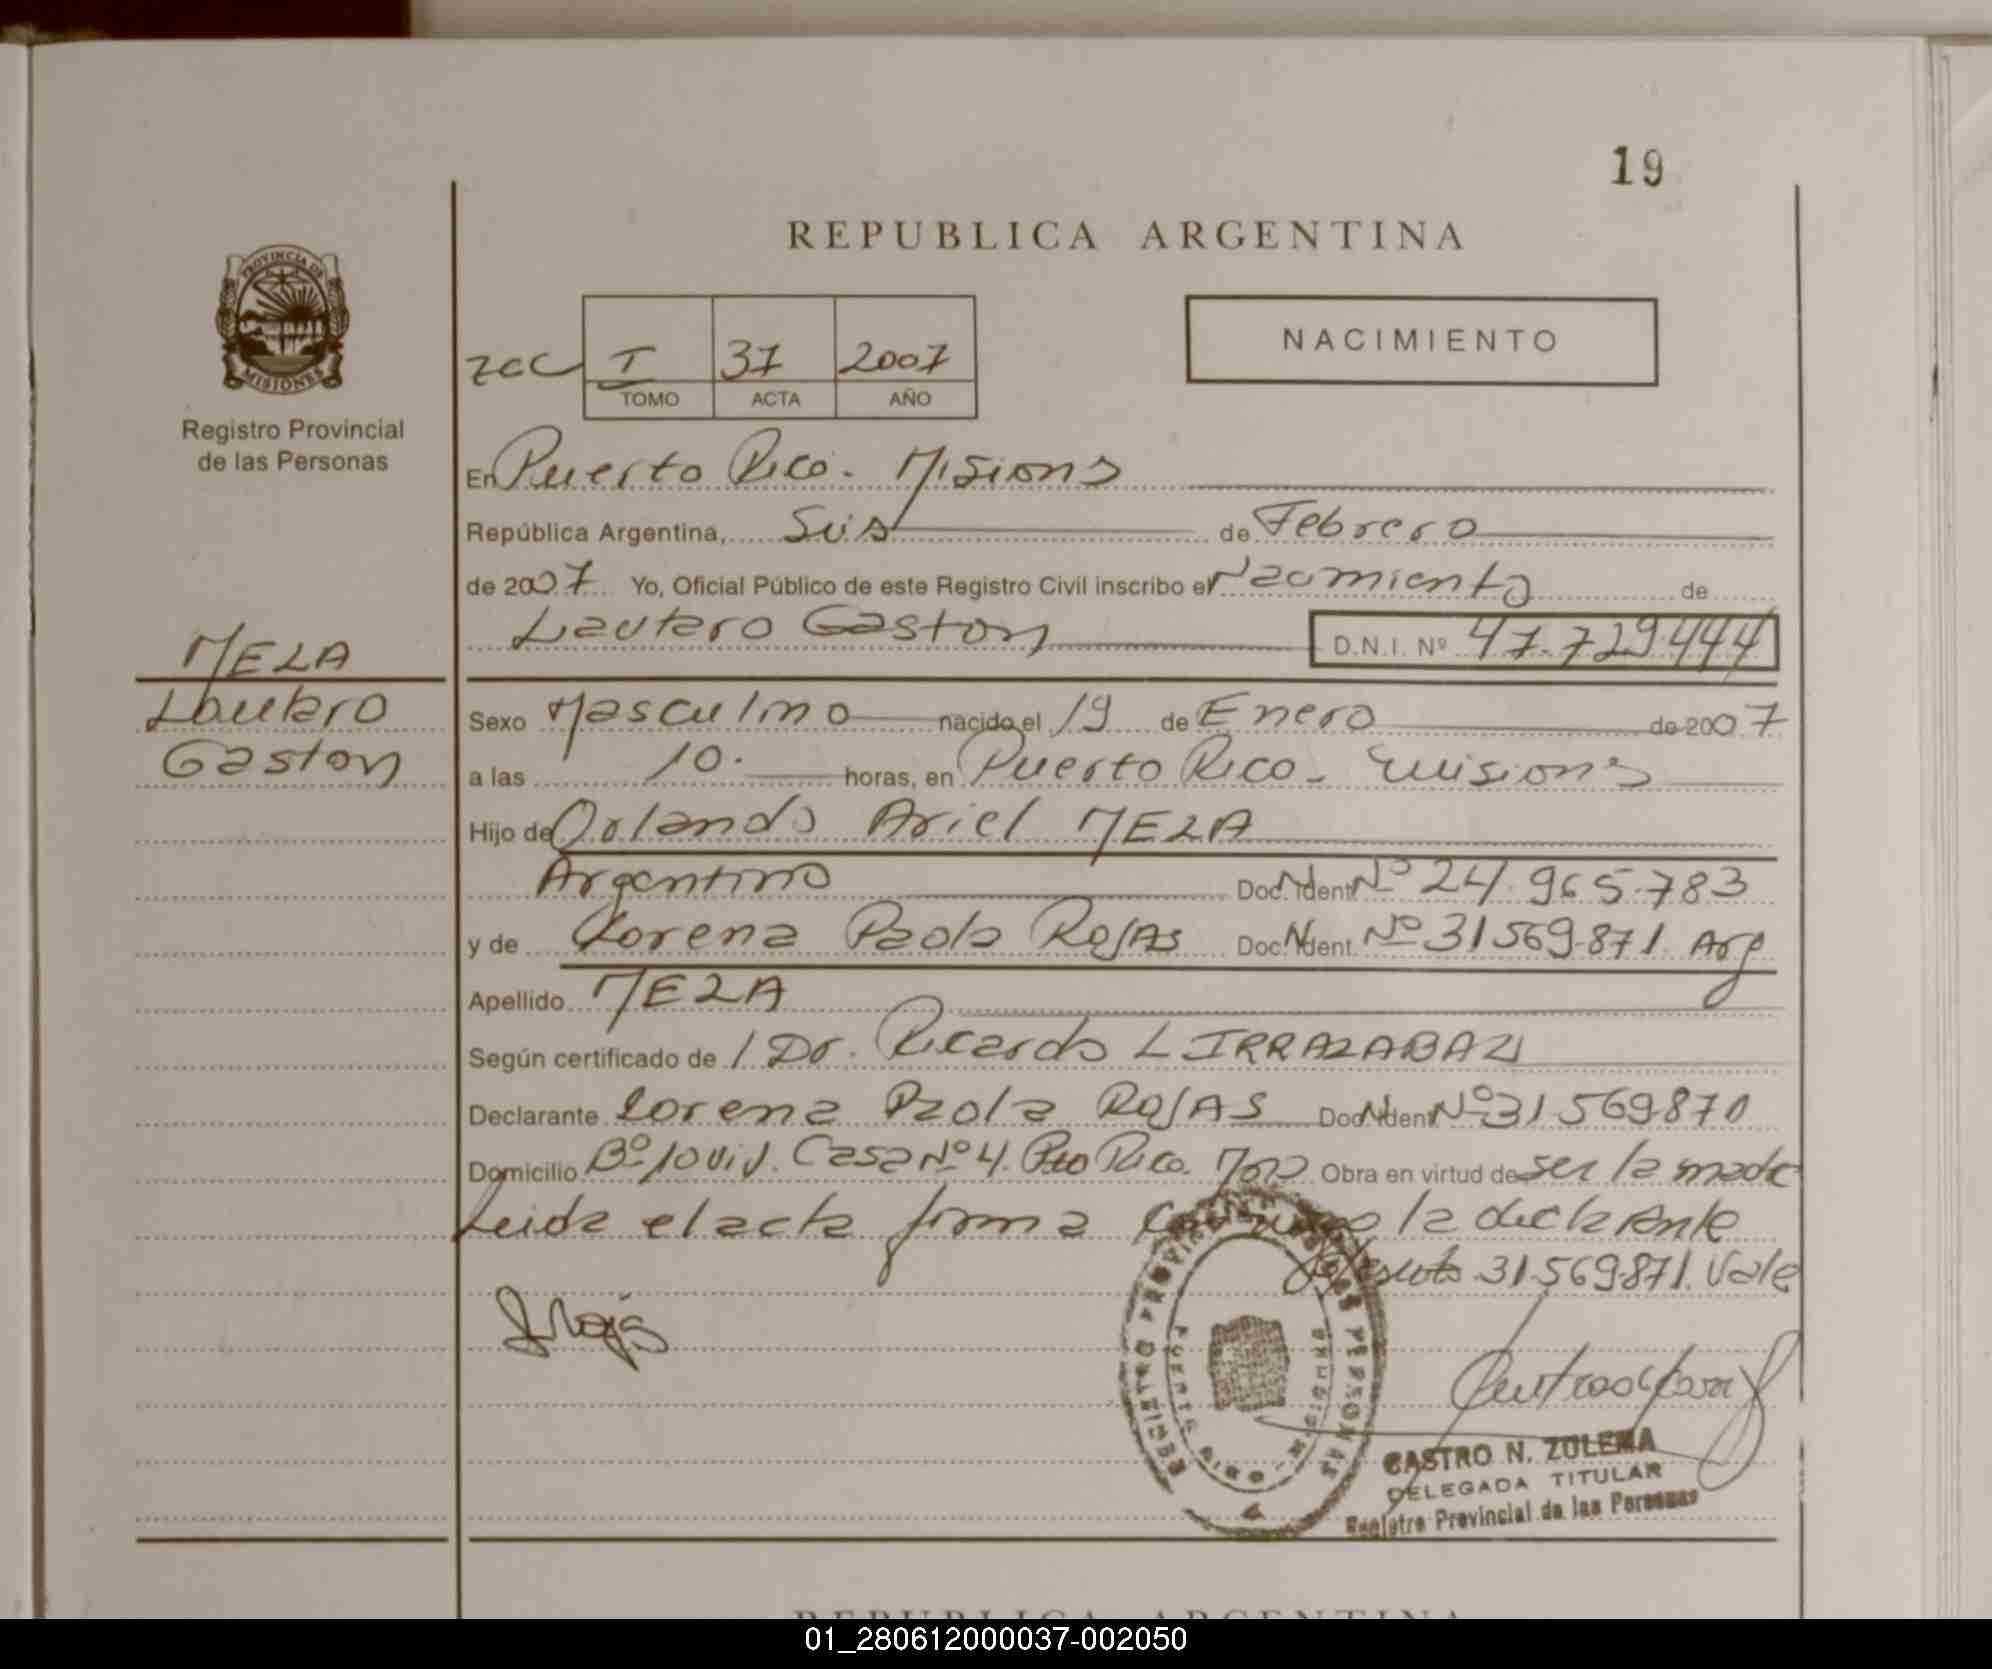 19
REPUBLICA ARGENTINA
PROVINCIA DE
MISIONES
Registro Provincial
de las Personas
NACIMIENTO
I 37 2007
TOMO ACTA AÑO
En Puerto Rico - Misiones
República Argentina, Seis de Febrero
de 2007 Yo, Oficial Público de este Registro Civil inscribo el Nacimiento de
Lautaro Gaston D.N.I. Nº 47.729.444
MEZA
Lautaro
Gaston
Sexo Masculino nacido el 19 de Enero de 2007
a las 10. horas, en Puerto Rico - Misiones
Hijo de Orlando Ariel MEZA
Argentino Doc. Ident. Nº 24.965.783
y de Lorena Paola ROJAS Doc. Ident. Nº 31.569.871. Arg
Apellido MEZA
Según certificado de / Dr. Ricardo LIRRAZABAL
Declarante Lorena Paola ROJAS Doc. Ident. Nº 31.569870
Domicilio Bº 10 viv. Casa Nº 4. Pto Rico. Obra en virtud de ser la madre
Leida el acta firma la declarante
31.569.871. Vale
REGISTRO PROVINCIAL DE LAS PERSONAS
CASTRO N. ZULEMA
DELEGADA TITULAR
Registro Provincial de las Personas
REPUBLICA ARGENTINA
01_280612000037-002050